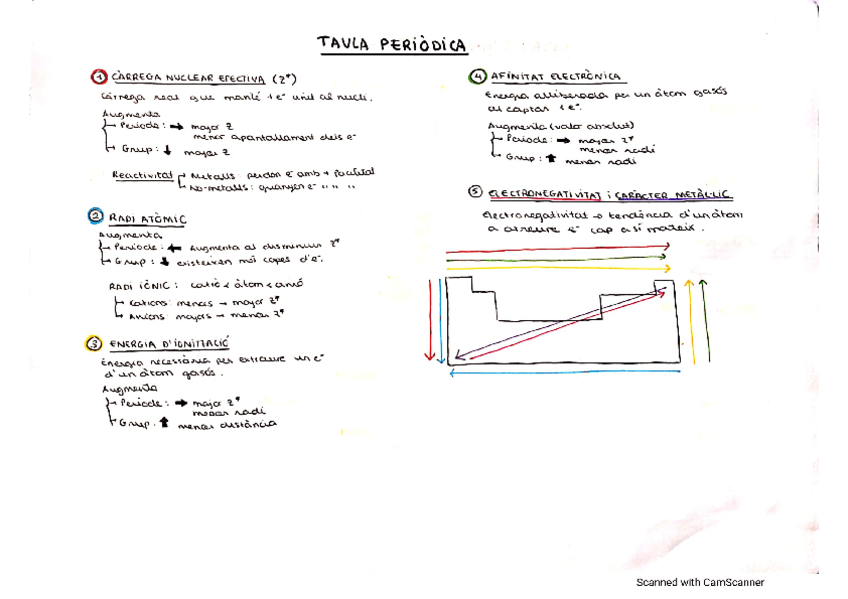 TAULA PERIÒDICA
1 CÀRREGA NUCLEAR EFECTIVA (Z*)
Càrrega real que manté 1 e⁻ unit al nucli.
Augmenta
Període: → major Z
menor apantallament dels e⁻
Grup: ↓ major Z
Reactivitat Metalls: perdon e⁻ amb + facilitat
No-metalls: guanyen e⁻ " " "
2 RADI ATÒMIC
Augmenta
Període: ← Augmenta al disminuir Z*
Grup: ↓ existeixen més capes d'e⁻.
RADI IÒNIC: catió < àtom < anió
Cations: menors → major Z*
Anions: majors → menor Z*
3 ENERGIA D'IONITZACIÓ
Energia necessària per extraure un e⁻
d'un àtom gasós.
Augmenta
Període: → major Z*
menor radi
Grup: ↑ menor distància
4 AFINITAT ELECTRÒNICA
Energia alliberada per un àtom gasós
al captar 1 e⁻.
Augmenta (valor absolut)
Període: → major Z*
menor radi
Grup: ↑ menor radi
5 ELECTRONEGATIVITAT i CARÀCTER METÀL·LIC
Electronegativitat → tendència d'un àtom
a atreure e⁻ cap a si mateix.
Scanned with CamScanner